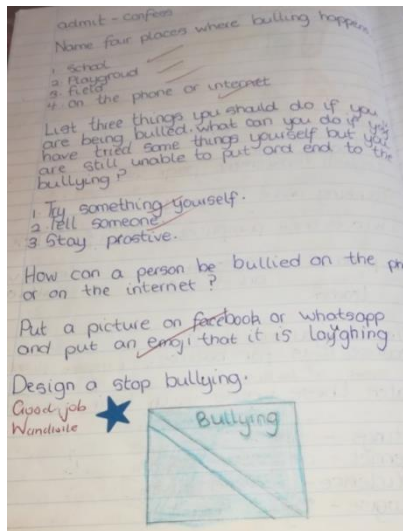 admit - confess
Name four places where bulling happens
1. School
2. Playgroud
3. field
4. on the phone or internet
List three things you should do if you
are being bulled. what can you do if you
have tried some things yourself but you
are still unable to put ord end to the
bullying?
1. Try something yourself.
2. Tell someone.
3. Stay prostive.
How can a person be bullied on the ph
or on the internet?
Put a picture on facebook or whatsapp
and put an emoji that it is laughing
Design a stop bullying.
Good job
Wandisile
Bullying